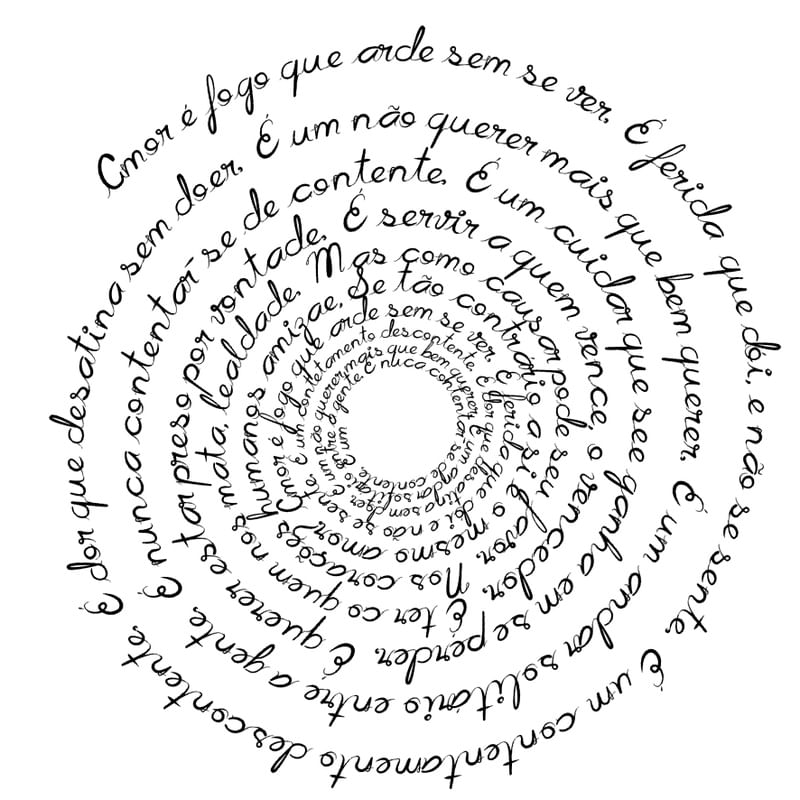 Amor é fogo que arde sem se ver, É ferida que dói, e não se sente, É um contentamento descontente, É dor que desatina sem doer, É um não querer mais que bem querer, É um andar solitário entre a gente, É nunca contentar-se de contente, É um cuidar que see ganha em se perder, É querer estar preso por vontade, É servir a quem vence, o vencedor, É ter co quem nos mata, lealdade, Mas como causar pode seu favor, Nos corações humanos amizae, Se tão contrário a si é o mesmo amor? Amor é fogo que arde sem se ver, É ferida que dói e não se sente, É um contetamento descontente, É dor que desatina sem doer, É um não querer mais que bem querer, É um andar solitáro entre a gente. É nuca contentar se de contente, É um